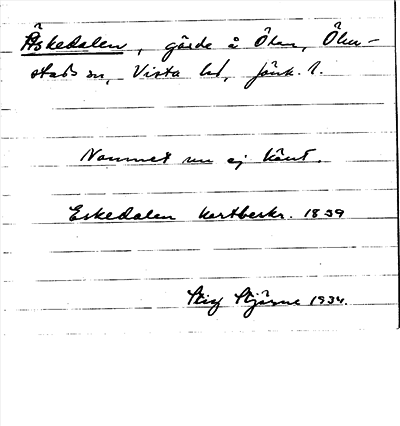 Äskedalen, gärde å Ölen, Ölm-
stads sn, Vista hd, Jönk. l.
Namnet nu ej känt.
Eskedalen kartbeskr. 1859
Stig Stjärne 1934.